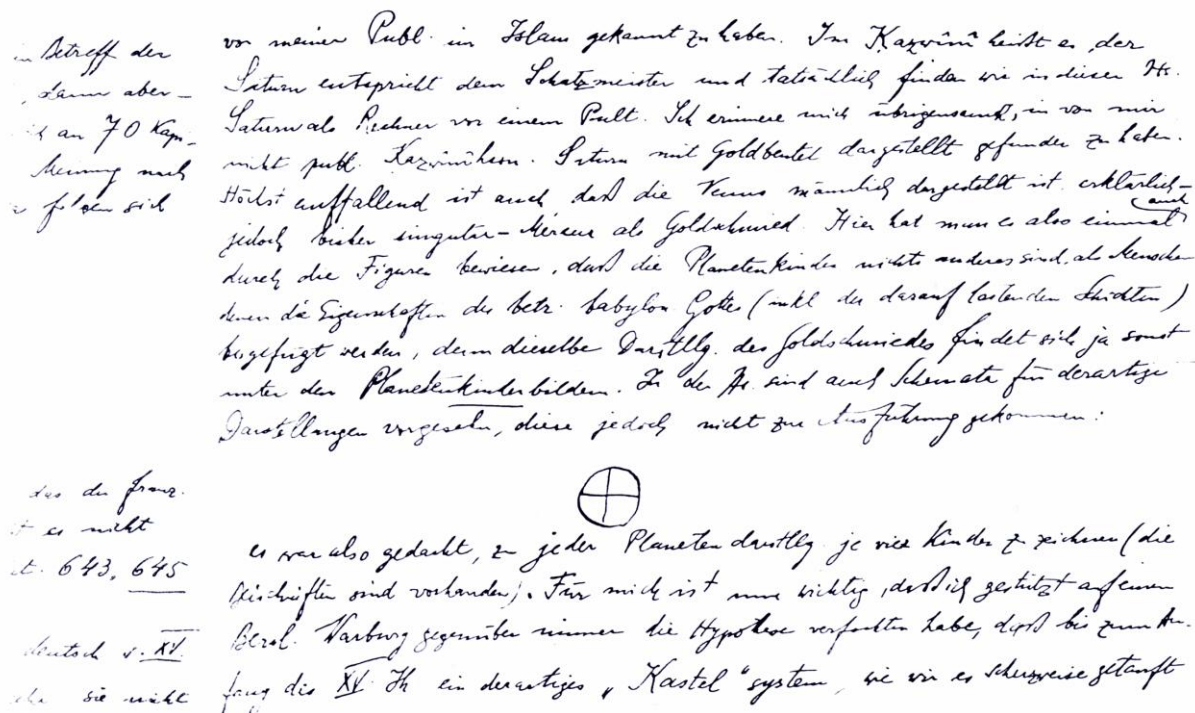 in Betreff der
, dann aber-
an 70 Kap.
Meinung nach
folgen sich
das der franz.
es nicht
643, 645
deutsch v. XV.
sie nicht
vor meiner Publ. im Islam gekannt zu haben. Im Kazwînî heißt es, der
Saturn entspricht dem Schatzmeister und tatsächlich finden wir in dieser Hs.
Saturn als Rechner vor einem Pult. Ich erinnere mich übrigens auch, in von mir
nicht publ. Kazwînîhssn. Saturn mit Goldbeutel dargestellt gefunden zu haben.
Höchst auffallend ist auch daß die Venus männlich dargestellt ist. erklärlich-
jedoch bisher singulär - Mercur als Goldschmied. Hier hat man es also einmal auch
durch die Figuren bewiesen, daß die Planetenkinder nichts anderes sind, als Menschen
denen die Eigenschaften des betr. babylon Gottes (inkl der darauf lastenden Schichten)
beigefügt werden, denn dieselbe Darstllg. des Goldschmiedes findet sich ja sonst
unter den Planetenkinderbildern. In der Hs. sind auch Schemata für derartige
Darstellungen vorgesehn, diese jedoch nicht zur Ausführung gekommen:
es war also gedacht, zu jeder Planetendarstllg. je vier Kinder zu zeichnen (die
Beischriften sind vorhanden). Für mich ist nun wichtig, daß ich gestützt auf einen
Berol. Warburg gegenüber immer die Hypothese verfochten habe, daß bis zum An-
fang des XV. Jh ein derartiges „Kastel" system, wie wir es scherzweise getauft